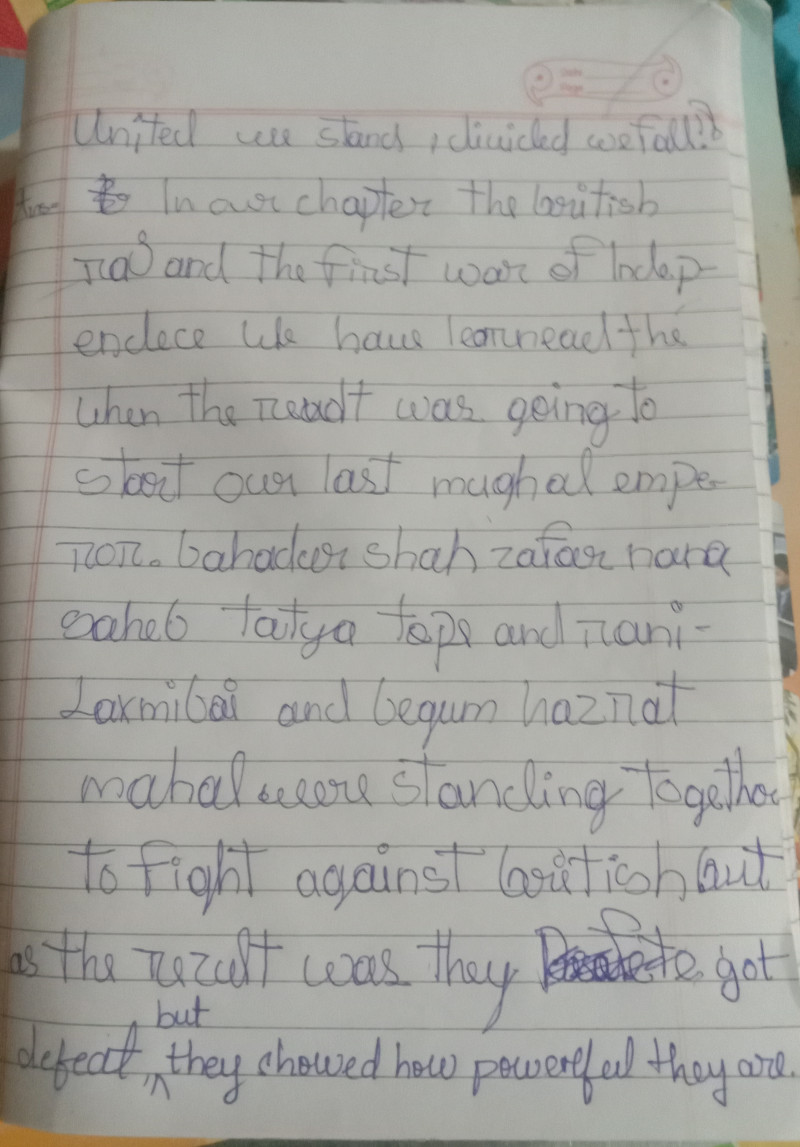 United we stand, divided we fall!?
Ans- In our chapter the british
raj and the first war of Indep-
endece We have learnead the
when the revolt was going to
start our last mughal empe-
ror. bahadur shah zafar nana
saheb tatya tope and rani-
Laxmibai and begum hazrat
mahal were standing together
to fight against british but
as the rezult was they got
but
defeat, they showed how powerful they are.